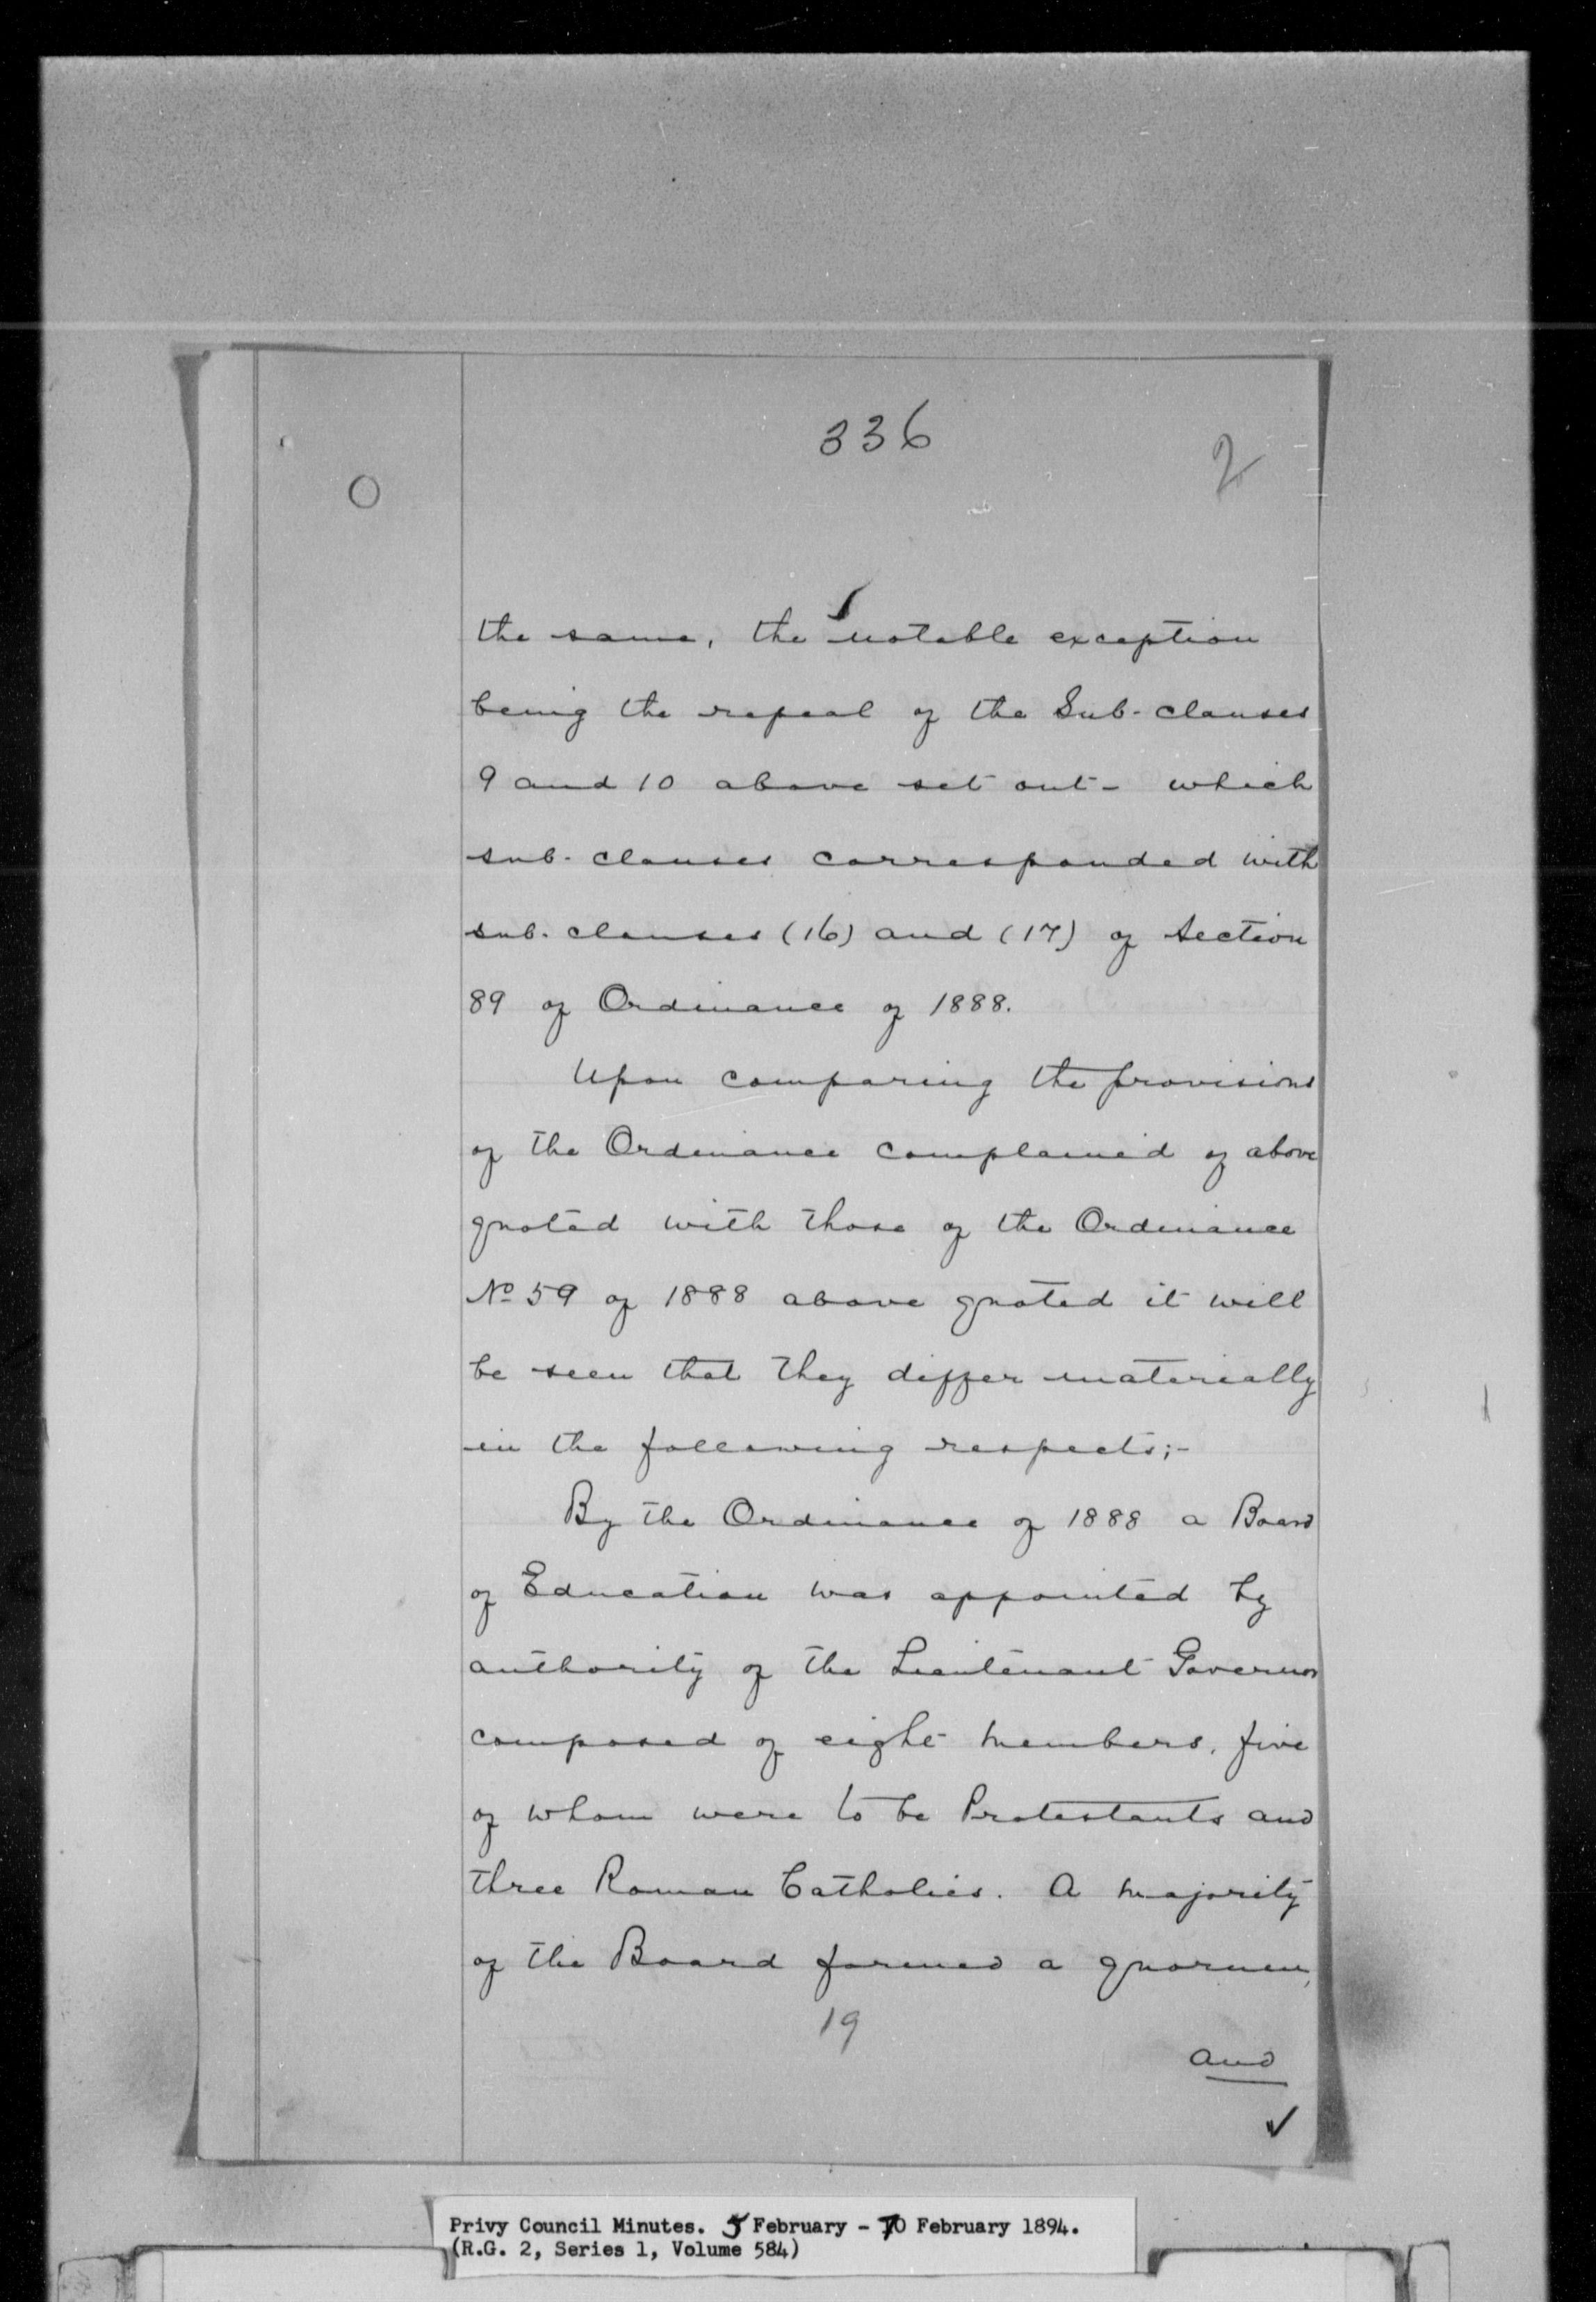 336
2
the same, the notable exception
being the repeal of the Sub-clauses
9 and 10 above set out - which
sub-clauses corresponded with
sub-clauses (16) and (17) of Section
89 of Ordinance of 1888.
Upon comparing the provisions
of the Ordinance complained of above
quoted with those of the Ordinance
No 59 of 1888 above quoted it will
be seen that they differ materially
in the following respects;-
By the Ordinance of 1888 a Board
of Education was appointed by
authority of the Lieutenant Governor
composed of eight members, five
of whom were to be Protestants and
three Roman Catholics. A majority
of the Board formed a quorum,
19
and
Privy Council Minutes. 5 February - 10 February 1894.
(R.G. 2, Series 1, Volume 584)